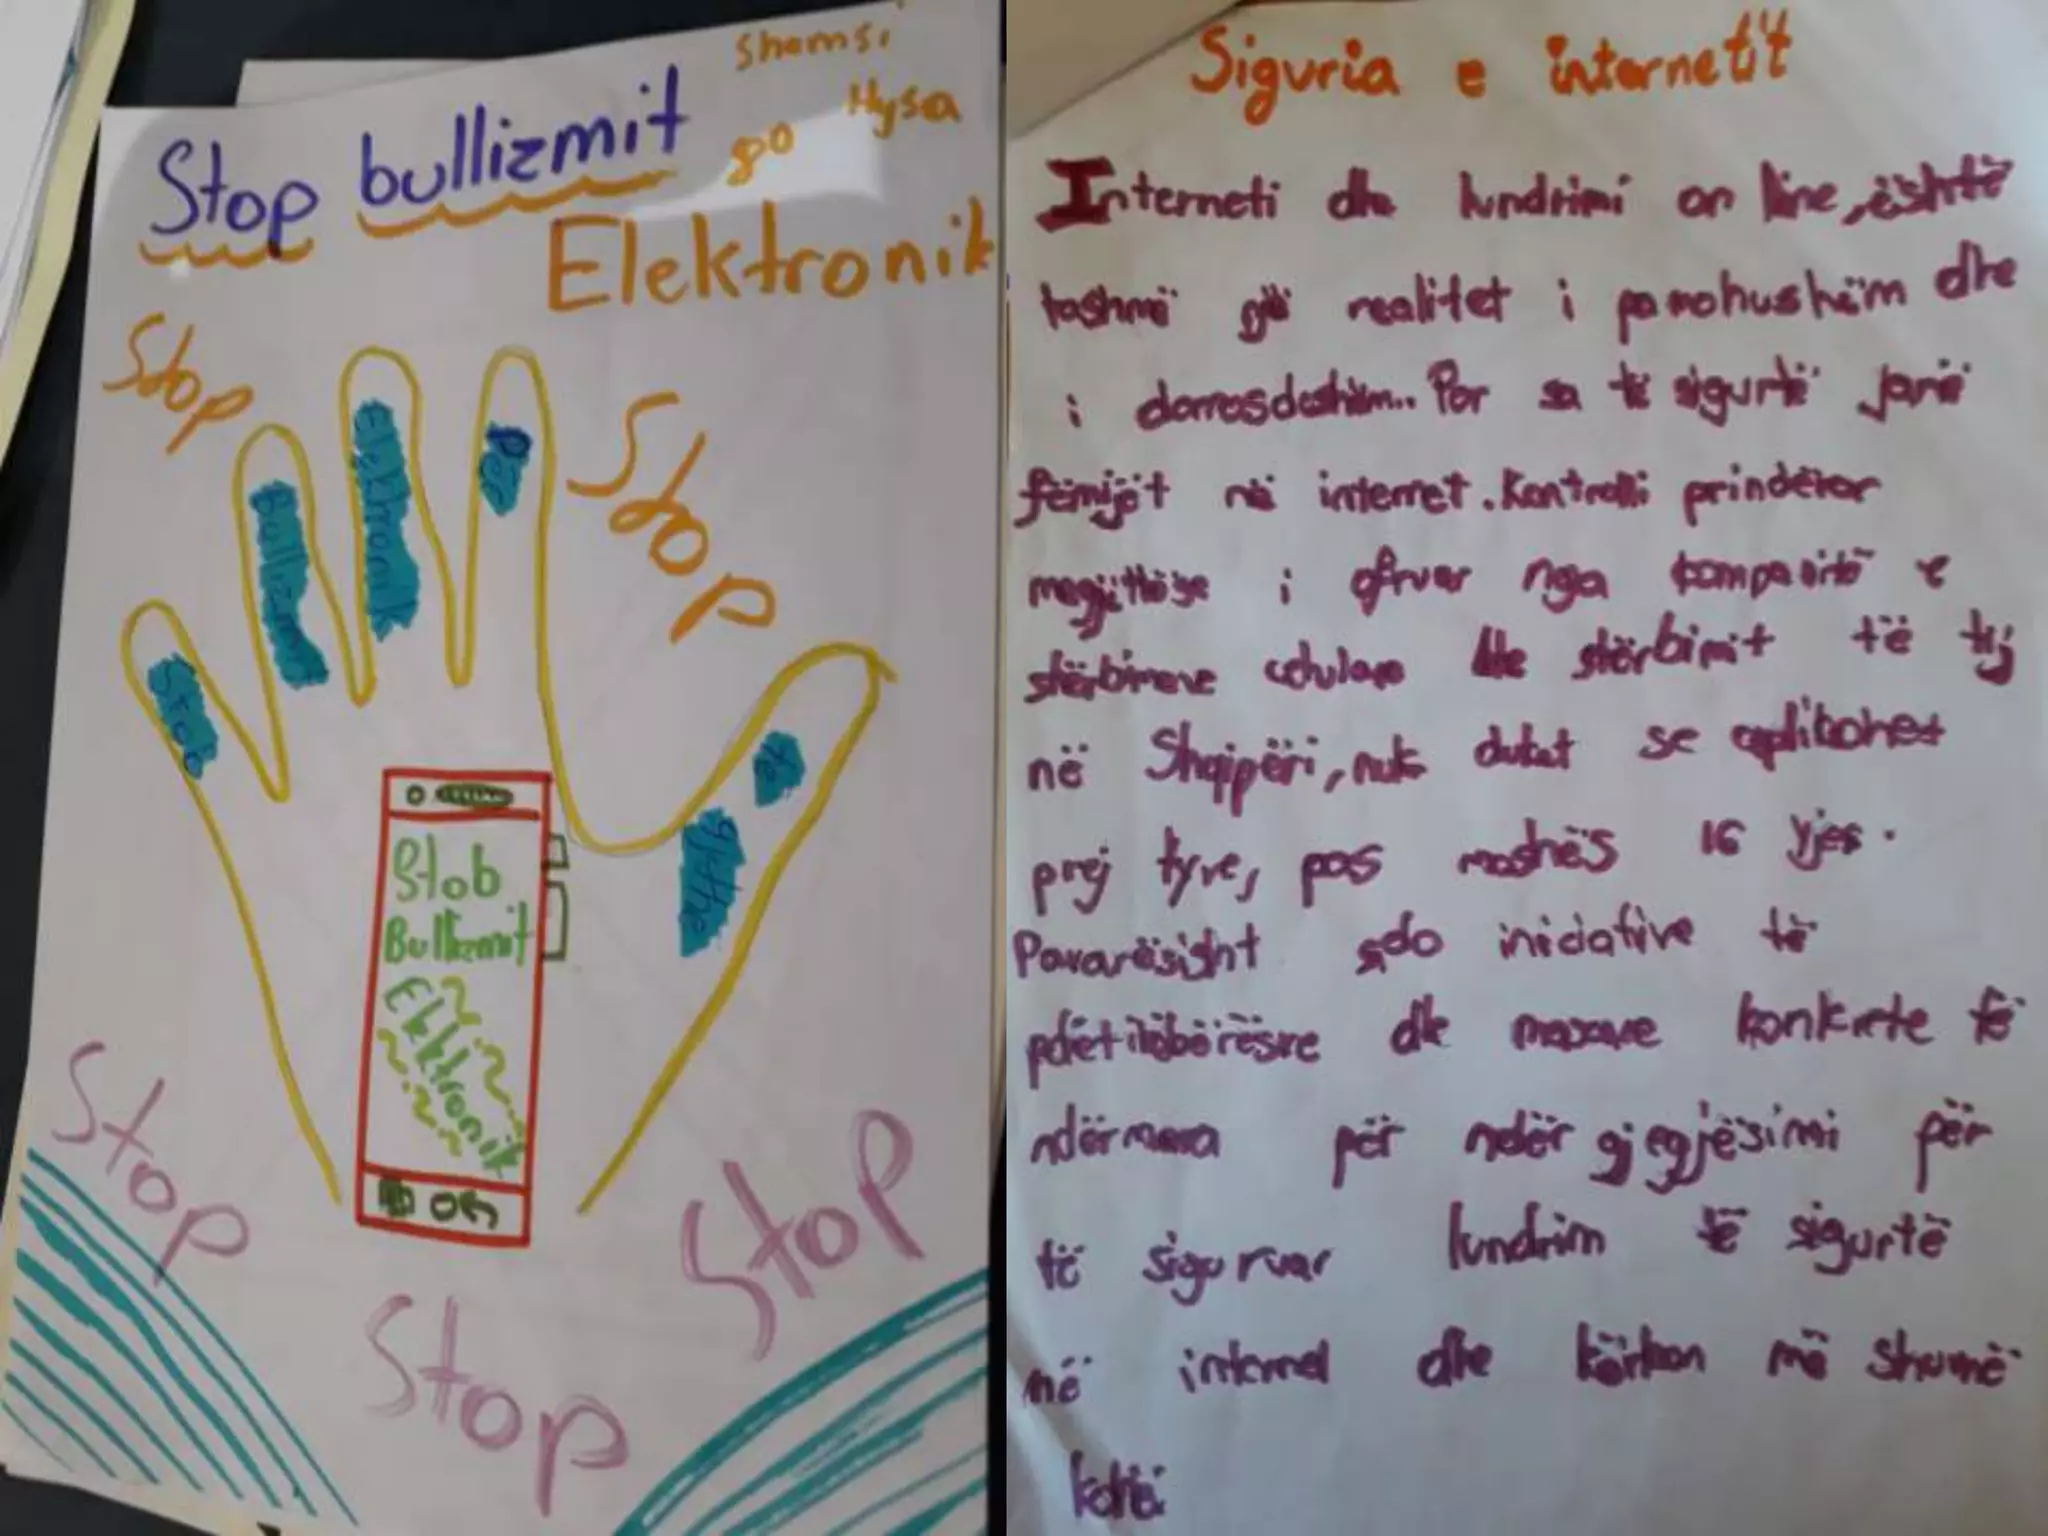 Shemsi
Hysa
Stop bullizmit
Elektronik
Stop
Stop
Stop
Bullizmit
Elektronik
Për
të
gjithë
Stob
Bullizmit
Elektronik
Stop
Stop
Stop
Siguria e internetit
Interneti dhe lundrimi on line, është
tashmë një realitet i pamohushëm dhe
i domosdoshëm.. Por sa të sigurtë janë
fëmijët në internet. Kontrolli prindëror
megjithëse i ofruar nga kompanitë e
shërbimeve celulare dhe shërbimit të tij
në Shqipëri, nuk duket se aplikohet
prej tyre, pas moshës 16 vjeç.
Pavarësisht çdo iniciative të
dhe masave konkrete të
ndërmara për ndër gjegjësimi për
të siguruar lundrim të sigurtë
në internet dhe kërkon më shumë
kohë